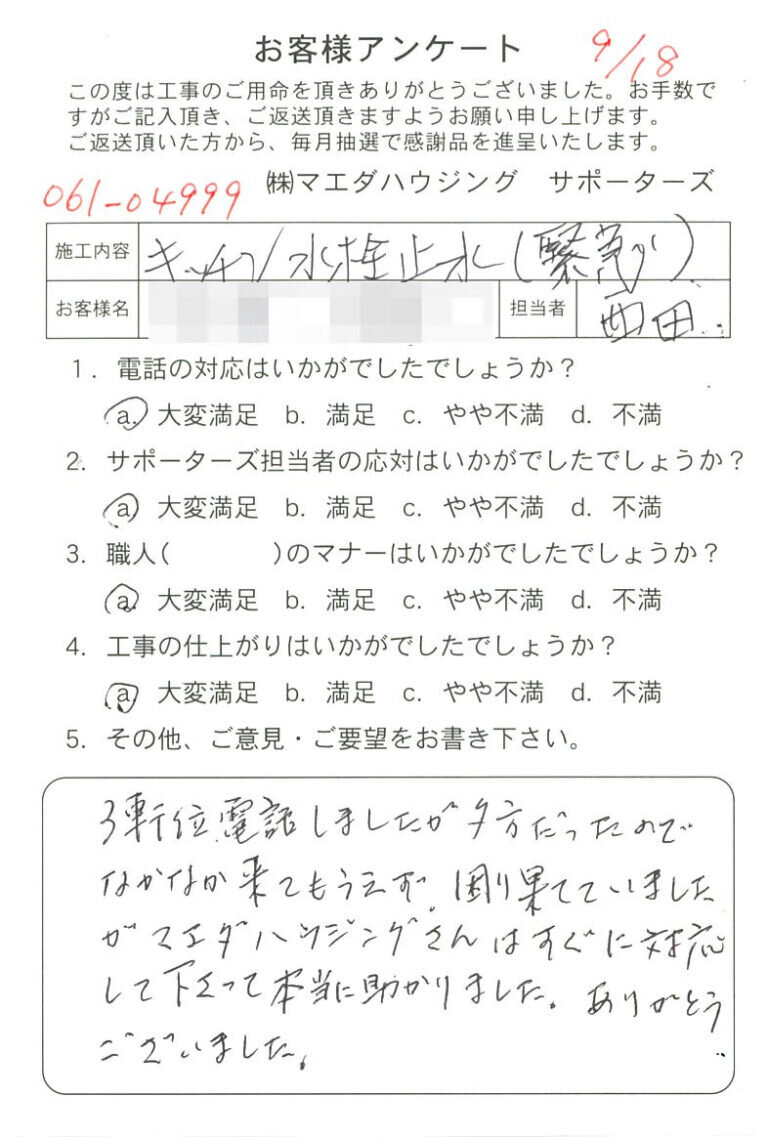 お客様アンケート
9/18
この度は工事のご用命を頂きありがとうございました。お手数で
すがご記入頂き、ご返送頂きますようお願い申し上げます。
ご返送頂いた方から、毎月抽選で感謝品を進呈いたします。
061-04999
㈱マエダハウジング サポーターズ
施工内容 キッチン水栓止水(緊急)
お客様名 担当者 西田
1. 電話の対応はいかがでしたでしょうか?
a. 大変満足 b. 満足 c. やや不満 d. 不満
2. サポーターズ担当者の応対はいかがでしたでしょうか?
a. 大変満足 b. 満足 c. やや不満 d. 不満
3. 職人( )のマナーはいかがでしたでしょうか?
a. 大変満足 b. 満足 c. やや不満 d. 不満
4. 工事の仕上がりはいかがでしたでしょうか?
a. 大変満足 b. 満足 c. やや不満 d. 不満
5. その他、ご意見・ご要望をお書き下さい。
3軒位電話しましたが夕方だったので
なかなか来てもらえず、困り果てていました
がマエダハウジングさんはすぐに対応
して下さって本当に助かりました。ありがとう
ございました。